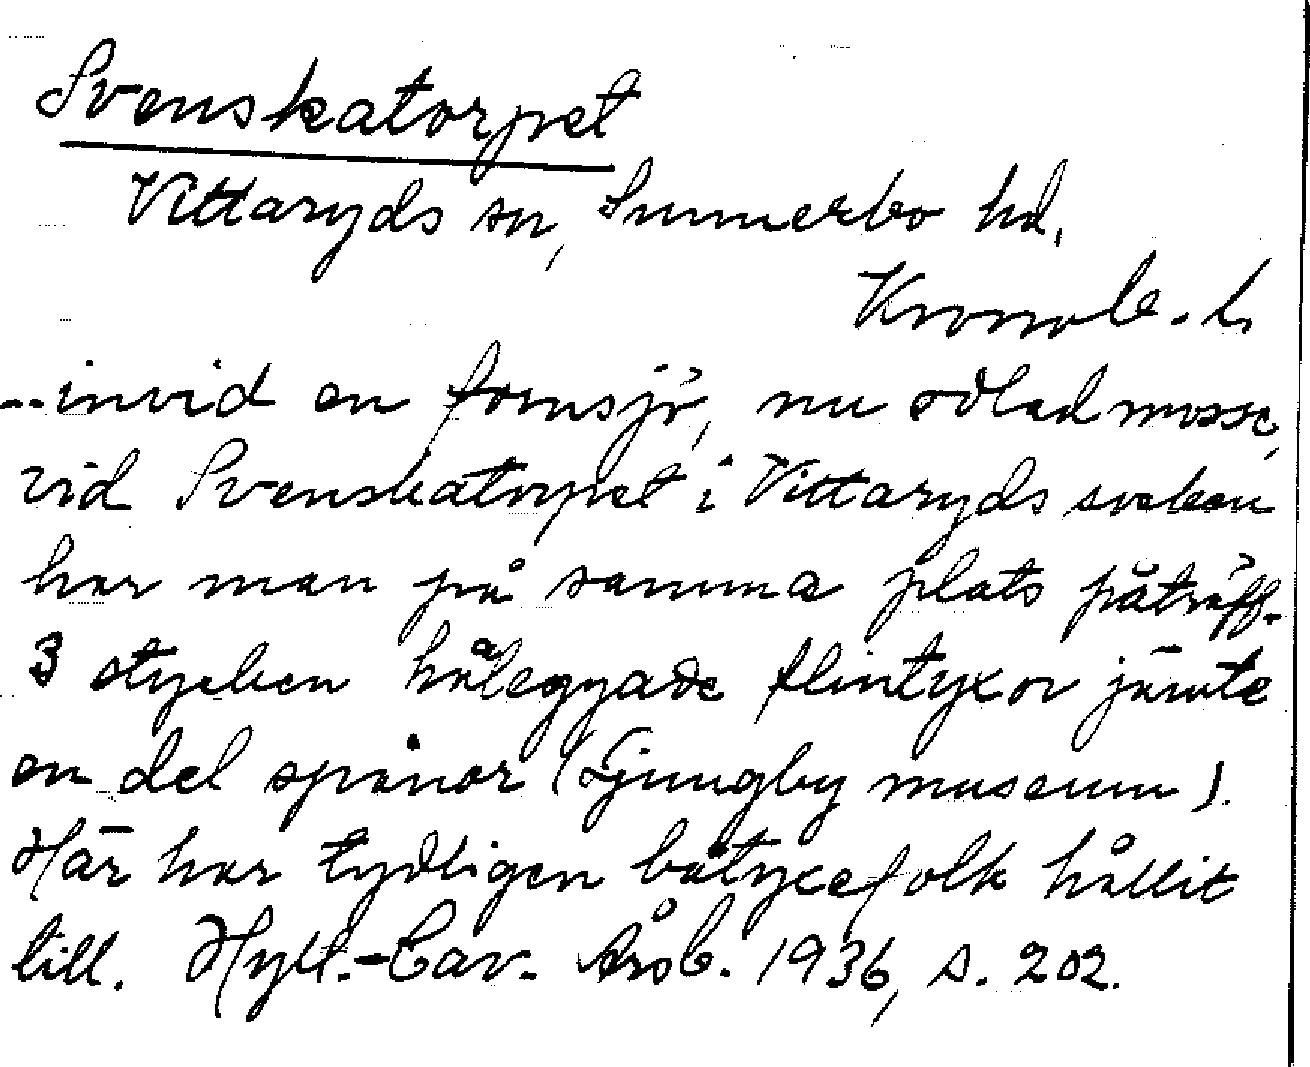 Svenskatorpet
Vittaryds sn, Sunnerbo hd,
Kronob. l.
--invid en fornsjö, nu odlad mosse,
vid Svenskatorpet i Vittaryds socken
har man på samma plats påträff.
3 stycken håleggade flintyxor jämte
en del spånor (Ljungby museum).
Här har tydligen båtyxefolk hållit
till. Hylt.-Cav. Årsb. 1936, s. 202.